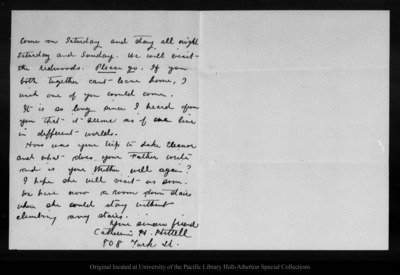 Come on Saturday and stay all night
Saturday and Sunday. We will visit
the redwoods. Please go. If you
both together can't leave home, I
wish one of you would come.
It is so long since I heard from
you that it seems as if we live
in different worlds.
How was your trip to Lake Eleanor
and what does your Father write
and is your Mother well again?
I hope she will visit us soon.
We have now a room down stairs
where she could stay without
climbing any stairs.
Your sincere friend
Catherine H. Hittell
808 Turk St.
Original located at University of the Pacific Library Holt-Atherton Special Collections